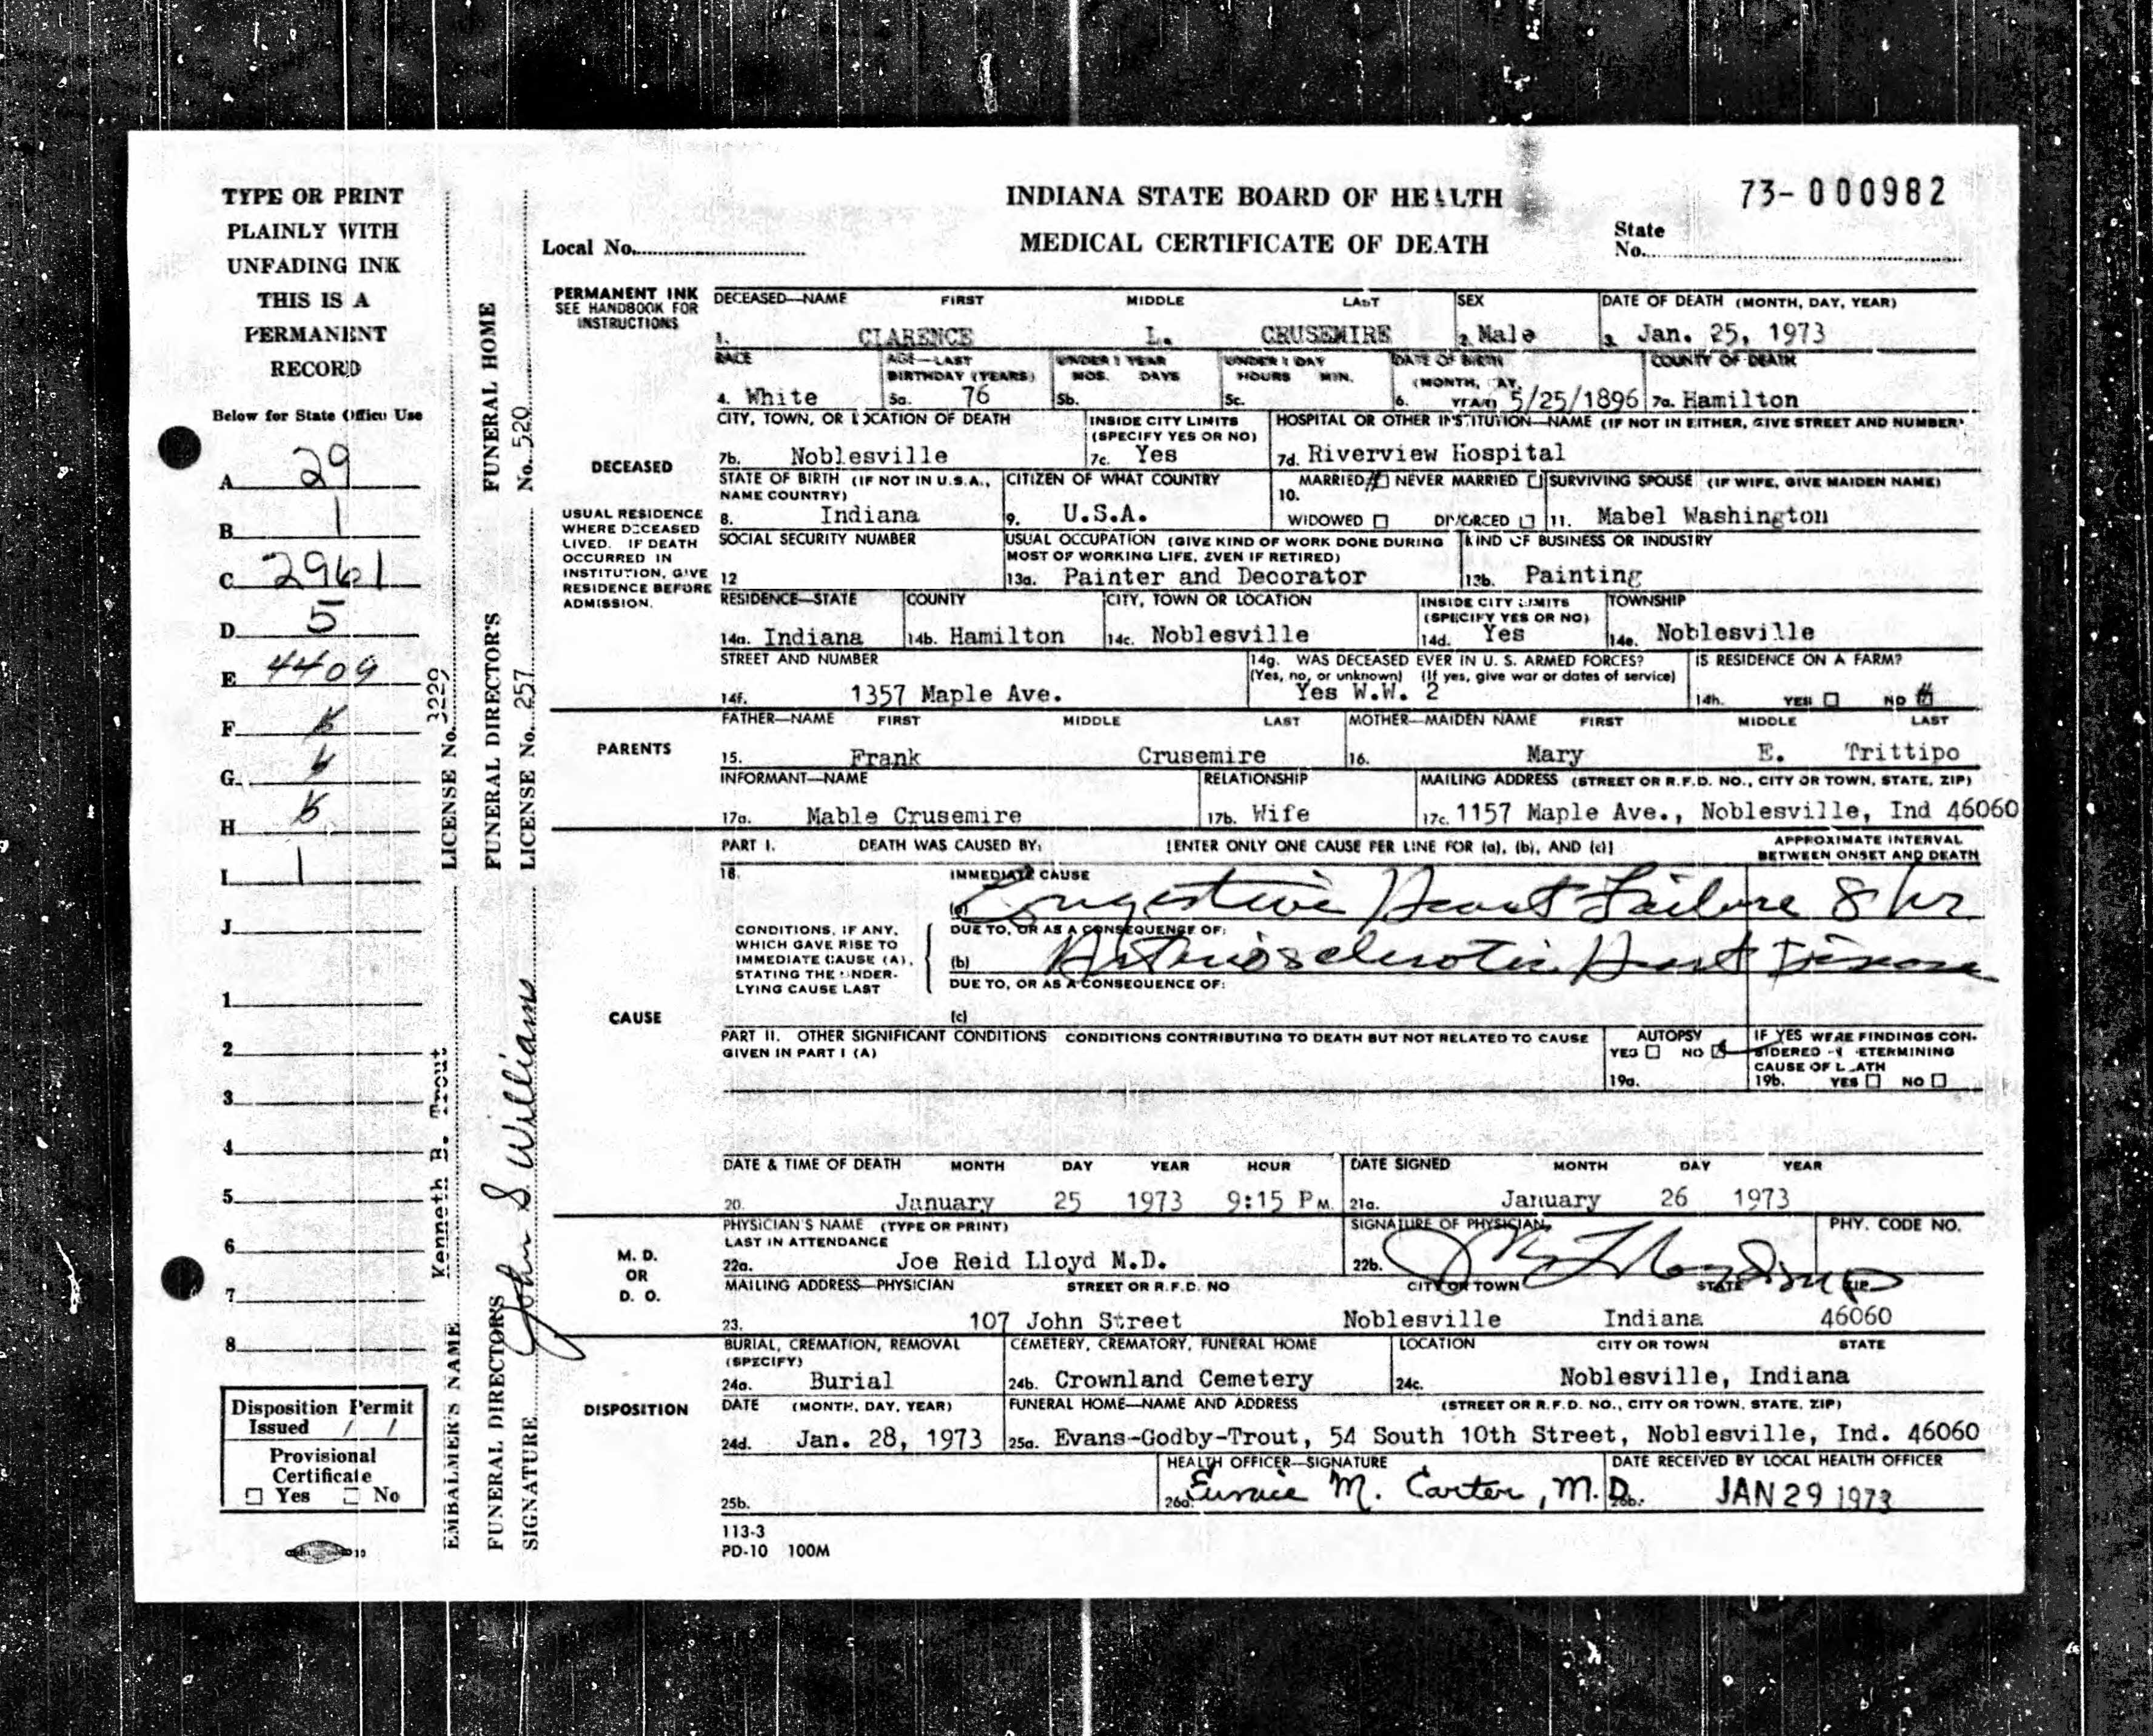 TYPE OR PRINT
PLAINLY WITH
UNFADING INK
THIS IS A
PERMANENT
RECORD
Below for State Office Use
A 29
B 1
C 2961
D 5
E 4409
F
G.
H
I 1
J
1
2
3
4
5
6
7
8
Disposition Permit
Issued / /
Provisional
Certificate
☐ Yes ☐ No
EMBALMER'S NAME Kenneth B. Trout LICENSE No. 3229
FUNERAL DIRECTOR'S SIGNATURE John S. Williams
FUNERAL DIRECTOR'S LICENSE No. 257
FUNERAL HOME No. 520
INDIANA STATE BOARD OF HEALTH
MEDICAL CERTIFICATE OF DEATH
73-000982
Local No.
State
No.
PERMANENT INK
SEE HANDBOOK FOR
INSTRUCTIONS
DECEASED—NAME FIRST MIDDLE LAST SEX DATE OF DEATH (MONTH, DAY, YEAR)
1. CLARENCE L. CRUSEMIRE 2. Male 3. Jan. 25, 1973
RACE AGE—LAST UNDER 1 YEAR UNDER 1 DAY DATE OF BIRTH COUNTY OF DEATH
BIRTHDAY (YEARS) MOS. DAYS HOURS MIN. (MONTH, DAY,
4. White 5a. 76 5b. 5c. 6. YEAR) 5/25/1896 7a. Hamilton
CITY, TOWN, OR LOCATION OF DEATH INSIDE CITY LIMITS HOSPITAL OR OTHER INSTITUTION—NAME (IF NOT IN EITHER, GIVE STREET AND NUMBER)
(SPECIFY YES OR NO)
DECEASED
7b. Noblesville 7c. Yes 7d. Riverview Hospital
STATE OF BIRTH (IF NOT IN U.S.A., CITIZEN OF WHAT COUNTRY MARRIED ☒ NEVER MARRIED ☐ SURVIVING SPOUSE (IF WIFE, GIVE MAIDEN NAME)
NAME COUNTRY) 10.
8. Indiana 9. U.S.A. WIDOWED ☐ DIVORCED ☐ 11. Mabel Washington
USUAL RESIDENCE
WHERE DECEASED
LIVED. IF DEATH
OCCURRED IN
INSTITUTION, GIVE
RESIDENCE BEFORE
ADMISSION.
SOCIAL SECURITY NUMBER USUAL OCCUPATION (GIVE KIND OF WORK DONE DURING KIND OF BUSINESS OR INDUSTRY
MOST OF WORKING LIFE, EVEN IF RETIRED)
12 13a. Painter and Decorator 13b. Painting
RESIDENCE—STATE COUNTY CITY, TOWN OR LOCATION INSIDE CITY LIMITS TOWNSHIP
(SPECIFY YES OR NO)
14a. Indiana 14b. Hamilton 14c. Noblesville 14d. Yes 14e. Noblesville
STREET AND NUMBER 14g. WAS DECEASED EVER IN U. S. ARMED FORCES? IS RESIDENCE ON A FARM?
(Yes, no, or unknown) (If yes, give war or dates of service)
14f. 1357 Maple Ave. Yes W.W. 2 14h. YES ☐ NO ☒
FATHER—NAME FIRST MIDDLE LAST MOTHER—MAIDEN NAME FIRST MIDDLE LAST
PARENTS
15. Frank Crusemire 16. Mary E. Trittipo
INFORMANT—NAME RELATIONSHIP MAILING ADDRESS (STREET OR R.F.D. NO., CITY OR TOWN, STATE, ZIP)
17a. Mable Crusemire 17b. Wife 17c. 1157 Maple Ave., Noblesville, Ind 46060
PART I. DEATH WAS CAUSED BY: [ENTER ONLY ONE CAUSE PER LINE FOR (a), (b), AND (c)] APPROXIMATE INTERVAL
BETWEEN ONSET AND DEATH
18. IMMEDIATE CAUSE
(a) Congestive Heart Failure 8 hr
CONDITIONS, IF ANY,
WHICH GAVE RISE TO
IMMEDIATE CAUSE (A),
STATING THE UNDER-
LYING CAUSE LAST
DUE TO, OR AS A CONSEQUENCE OF:
(b) Arteriosclerotic Heart Disease
DUE TO, OR AS A CONSEQUENCE OF:
(c)
CAUSE
PART II. OTHER SIGNIFICANT CONDITIONS CONDITIONS CONTRIBUTING TO DEATH BUT NOT RELATED TO CAUSE
GIVEN IN PART I (A)
AUTOPSY
YES ☐ NO ☒
19a.
IF YES WERE FINDINGS CON-
SIDERED IN DETERMINING
CAUSE OF DEATH
19b. YES ☐ NO ☐
DATE & TIME OF DEATH MONTH DAY YEAR HOUR DATE SIGNED MONTH DAY YEAR
20. January 25 1973 9:15 P M. 21a. January 26 1973
PHYSICIAN'S NAME (TYPE OR PRINT) SIGNATURE OF PHYSICIAN PHY. CODE NO.
LAST IN ATTENDANCE
M. D.
OR
D. O.
22a. Joe Reid Lloyd M.D. 22b. J R Lloyd MD
MAILING ADDRESS—PHYSICIAN STREET OR R.F.D. NO CITY OR TOWN STATE ZIP
23. 107 John Street Noblesville Indiana 46060
BURIAL, CREMATION, REMOVAL CEMETERY, CREMATORY, FUNERAL HOME LOCATION CITY OR TOWN STATE
(SPECIFY)
24a. Burial 24b. Crownland Cemetery 24c. Noblesville, Indiana
DISPOSITION
DATE (MONTH, DAY, YEAR) FUNERAL HOME—NAME AND ADDRESS (STREET OR R.F.D. NO., CITY OR TOWN, STATE, ZIP)
24d. Jan. 28, 1973 25a. Evans-Godby-Trout, 54 South 10th Street, Noblesville, Ind. 46060
HEALTH OFFICER—SIGNATURE DATE RECEIVED BY LOCAL HEALTH OFFICER
25b. 26a. Eunice M. Carter, M.D. 26b. JAN 29 1973
113-3
PD-10 100M